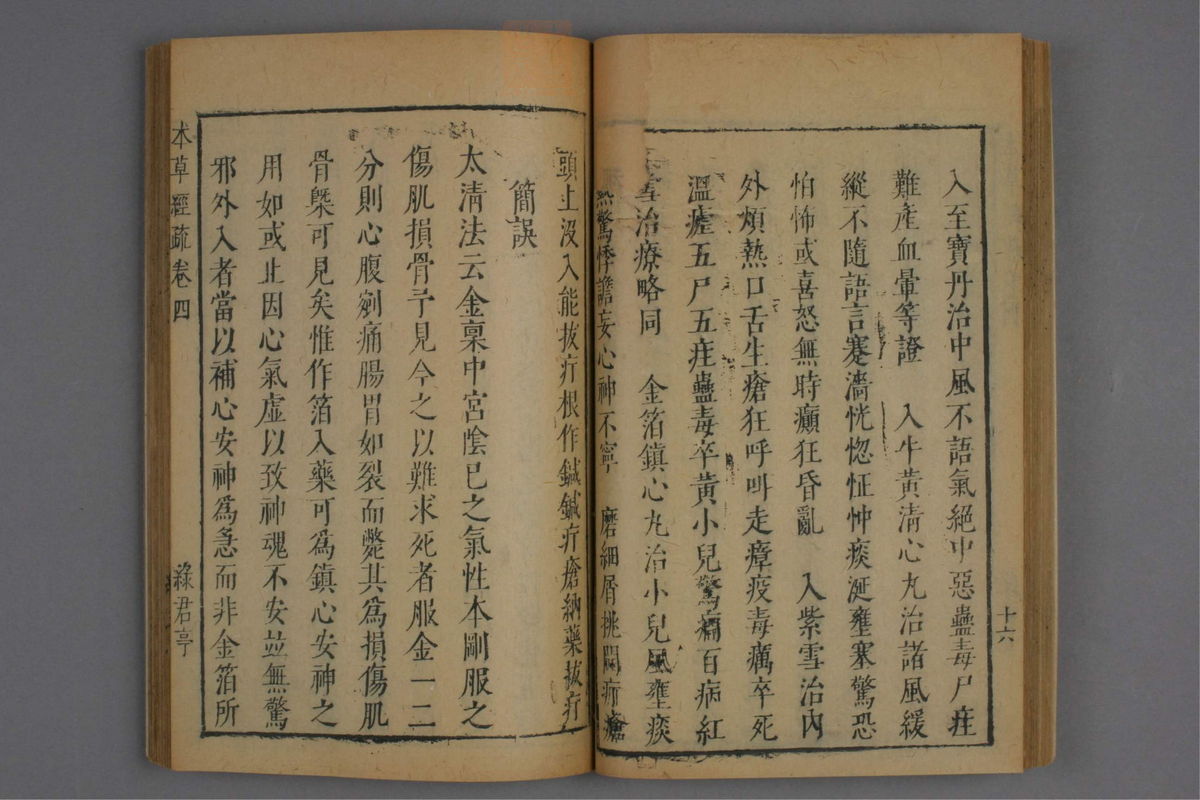 入至寶丹治中風不語氣絕中惡蠱毒尸疰
難產血暈等證　入牛黃清心丸治諸風緩
縱不隨語言蹇濇恍惚怔忡痰涎壅塞驚恐
怕怖或喜怒無時癲狂昏亂　入紫雪治內
外煩熱口舌生瘡狂呼叫走瘴疫毒癘卒死
溫瘧五尸五疰蠱毒卒黃小兒驚癎百病紅
雪治療略同　金箔鎮心丸治小兒風壅痰
熱驚悸譫妄心神不寧　磨細屑挑開疔瘡
十六
頭上沒入能拔疔根作鍼鍼疔瘡納藥拔疔
簡誤
太清法云金稟中宮陰已之氣性本剛服之
傷肌損骨予見今之以難求死者服金一二
分則心腹剜痛腸胃如裂而斃其為損傷肌
骨槩可見矣惟作箔入藥可為鎮心安神之
用如或止因心氣虛以致神魂不安並無驚
邪外入者當以補心安神為急而非金箔所
本草經疏卷四
綠君亭